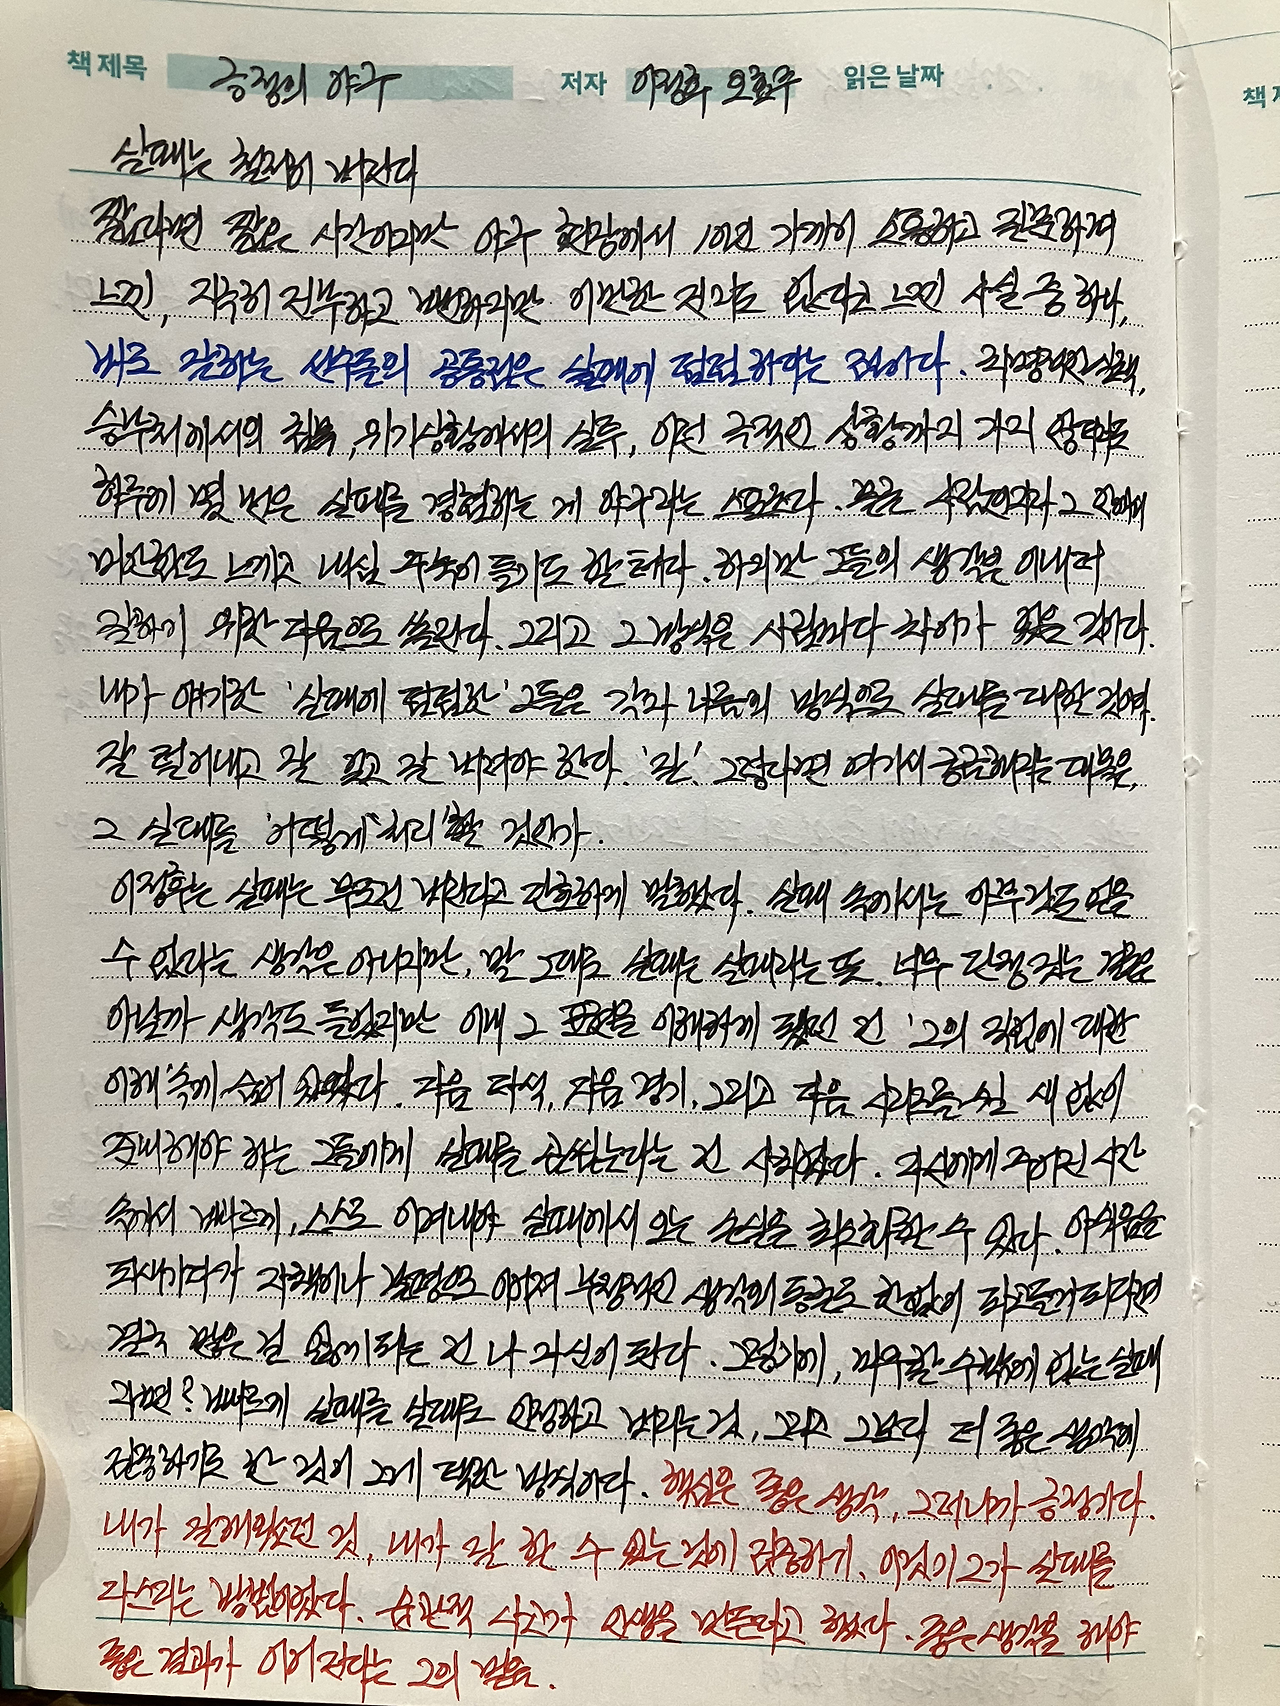 책 제목 긍정의 야구 저자 이정후 오효주 읽은 날짜
책 제
실패는 철저히 버린다
짧다면 짧은 시간이지만 야구 현장에서 이런 가까이 소통하고 질문하며
느낀, 지극히 진부하고 뻔하지만 이만한 진리도 없다고 느낀 사실 중 하나,
바로 잘하는 선수들의 공통점은 실패에 덤덤하다는 점이다. 치명적인 실책,
승부처에서의 침묵, 위기상황에서의 실투, 이런 극적인 상황까지 가지 않더라도
하루에 몇 번은 실패를 경험하는 게 야구라는 스포츠다. 물론 사람인지라 그 안에서
미안함도 느끼고 내심 주눅이 들기도 할 테다. 하지만 그들의 생각은 이내 더
잘하기 위한 다음으로 쏠린다. 그리고 그 방식은 사람마다 차이가 있을 것이다.
내가 얘기한 '실패에 덤덤한' 그들은 각자 나름의 방식으로 실패를 대한 것이다.
잘 털어내고 잘 잊고 잘 버려야 한다. '잘'. 그렇다면 여기서 궁금해지는 대목은,
그 실패를 '어떻게' '처리'할 것인가.
이정후는 실패는 무조건 버린다고 단호하게 말했다. 실패 속에서는 아무것도 얻을
수 없다는 생각은 아니지만, 말 그대로 실패는 실패라는 뜻. 너무 단정 짓는 걸은
아닐까 생각도 들었지만 이내 그 표현을 이해하게 됐던 건 '그의 직업에 대한
이해' 속에 숨어 있었다. 다음 타석, 다음 경기, 그리고 다음 시리즈를 쉴 새 없이
준비해야 하는 그들에게 실패를 곱씹는다는 건 사치였다. 자신에게 주어진 시간
속에서 빠르게, 스스로 이겨내야 실패에서 오는 손실을 최소화할 수 있다. 아쉬움을
되새기다가 자책이나 절망으로 이어져 부정적인 생각의 동굴로 한없이 파고들게 되다면
결국 많은 걸 잃게 되는 건 나 자신이 된다. 그렇기에, 되돌릴 수밖에 없는 실패
라면? 빠르게 실패를 실패로 인정하고 버리는 것, 그리고 그보다 더 좋은 생각에
집중하기로 한 것이 그가 택한 방식이다. 핵심은 좋은 생각, 그러니까 긍정이다.
내가 잘해왔던 것, 내가 잘 할 수 있는 것에 집중하기. 이것이 그가 실패를
다스리는 방법이었다. 습관적 사고가 인생을 만든다고 했다. 좋은 생각을 해야
좋은 결과가 이어진다는 그의 믿음.